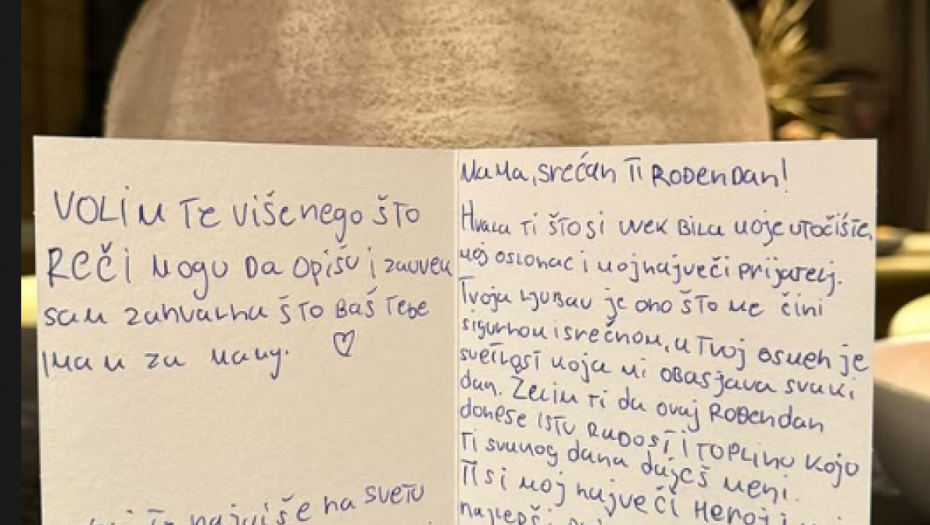 VOLIM Te višenego što
Reči mogu Da opišu i zauvek
sam zahvalna što Baš Tebe
imam za mamu. ♡
najviše na svetu
Mama, srećan Ti Rođendan!
Hvala ti što si uvek Bila moje utočište,
moj oslonac i moj največi prijatelj.
Tvoja ljubav je ono što me čini
sigurnom i srečnom, a tvoj osmeh je
svetlost koja mi obasjava svaki
dan. Želim ti da ovaj Rođendan
donese istu radost i toplinu koju
ti svakog dana daješ meni.
Ti si moj največi Heroj i
najlepši